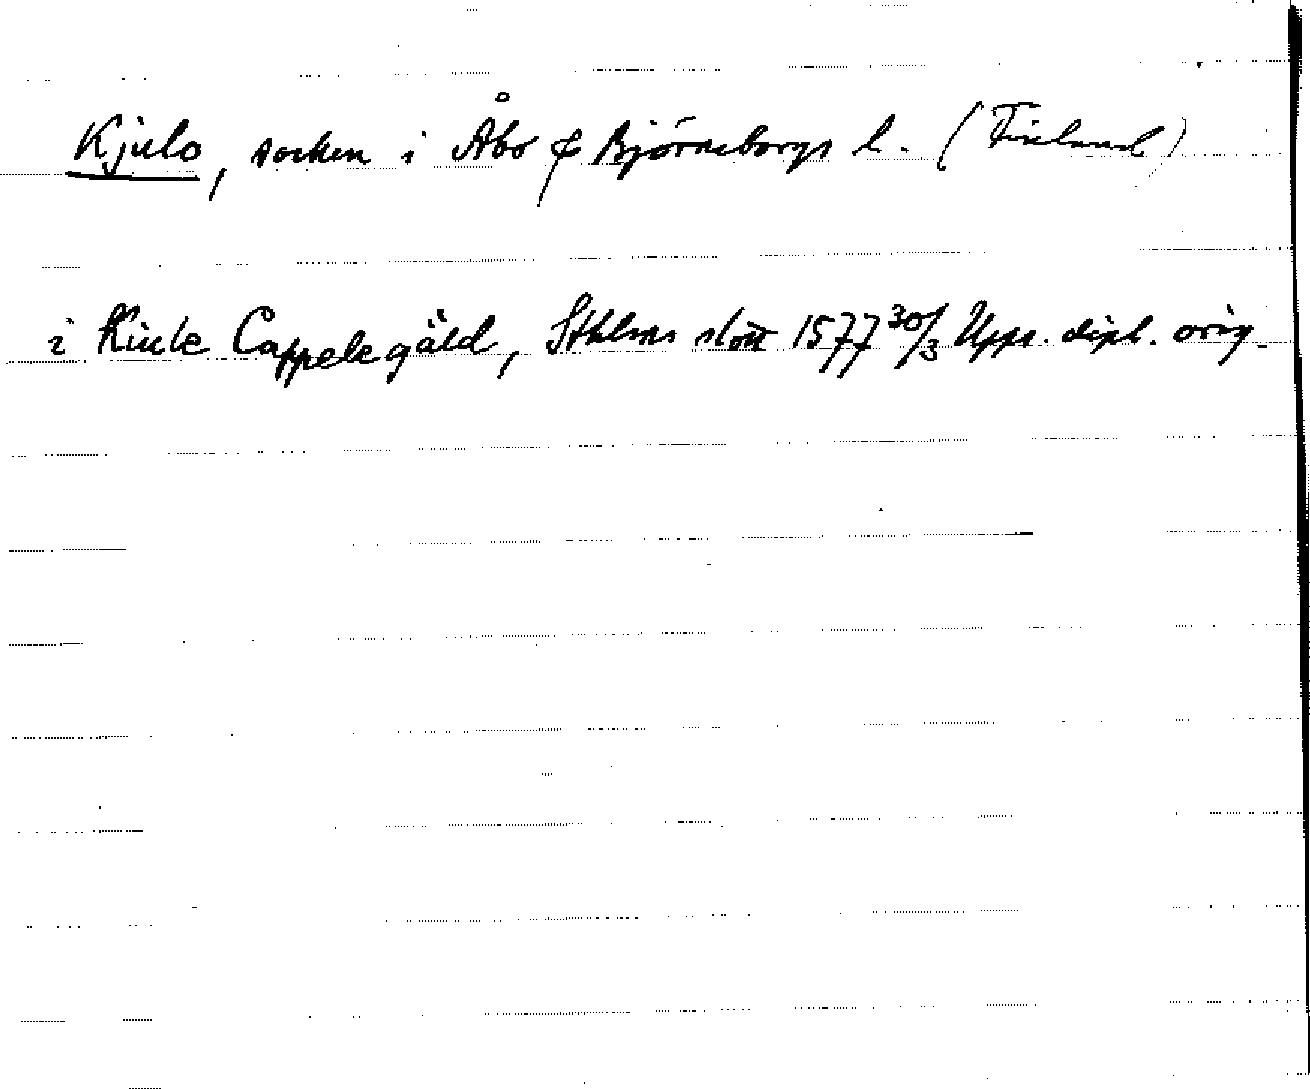 Kjulo, socken i Åbo & Björneborgs l. (Finland)
i Kiule Cappelegäld, Sthlms slott 1577 30/3 Upps. dipl. orig.